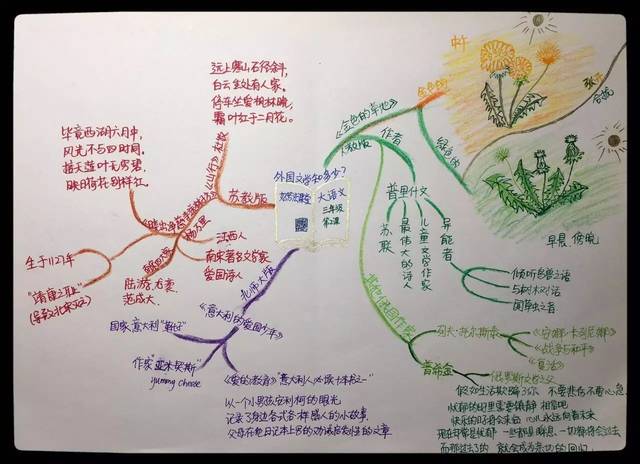 外国文学知多少?
大语文
三年级
第2课
苏教版
《山行》杜牧
远上寒山石径斜,
白云生处有人家。
停车坐爱枫林晚,
霜叶红于二月花。
《晓出净慈寺送林子方》
杨万里
毕竟西湖六月中,
风光不与四时同,
接天莲叶无穷碧,
映日荷花别样红。
江西人
南宋著名文学家
爱国诗人
陆游、尤袤
范成大、
生于1127年
"靖康之耻"
北师大版
《意大利的爱国少年》
国家:意大利"靴子"
作家
yummy cheese
《爱的教育》"意大利人必读十本书之一"
以一个小男孩安利柯的眼光
记录了身边各式各样的人的小故事
父母在他日记本上写的劝诫启发性的文章
人教版
《金色的草地》
金色的
绿色的
张开
合拢
早晨、傍晚
作者
普里什文
苏联
最伟大的诗人
儿童文学作家
异能者
倾听鸟兽之语
与树木对话
闻草虫之香
其他俄国作家
列夫·托尔斯泰
《安娜·卡列尼娜》
《战争与和平》
《复活》
普希金
俄罗斯文学之父
假如生活欺骗了你 不要悲伤不要心急
忧郁的日子里需要镇静 相信吧
快乐的日子将会来临 心儿永远向着未来
现在却常是忧郁 一切都是瞬息 一切都将会过去
而那过去了的 就会成为亲切的回忆